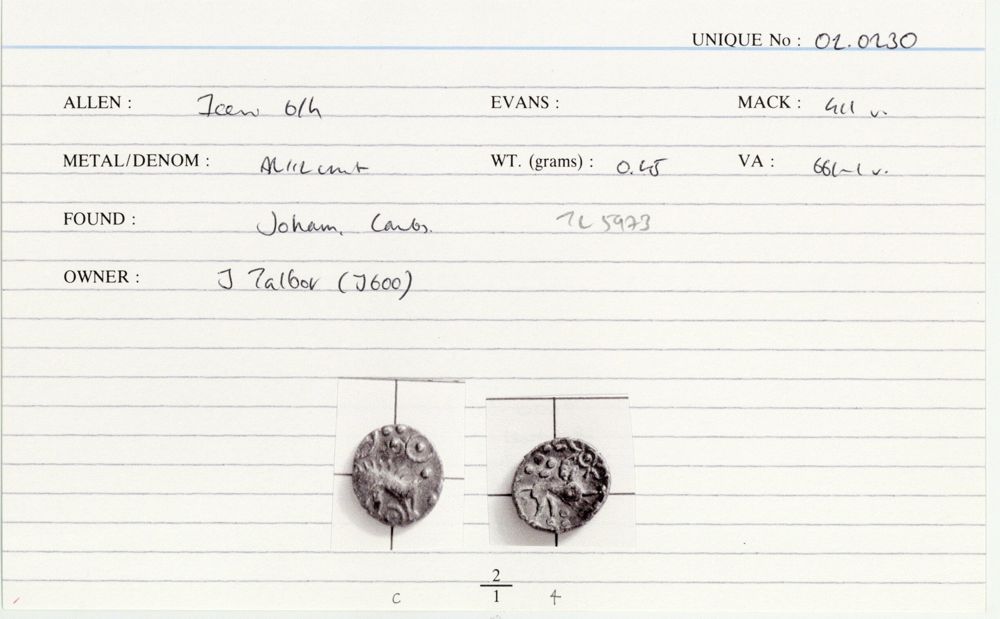 UNIQUE No : 02.0230
ALLEN : Iceni b/h EVANS : MACK : 411 v.
METAL/DENOM : WT. (grams) : 0.45 VA : v.
FOUND : Soham, Cambs. TL 5973
OWNER : J Talbot (J600)
2
c 1 4